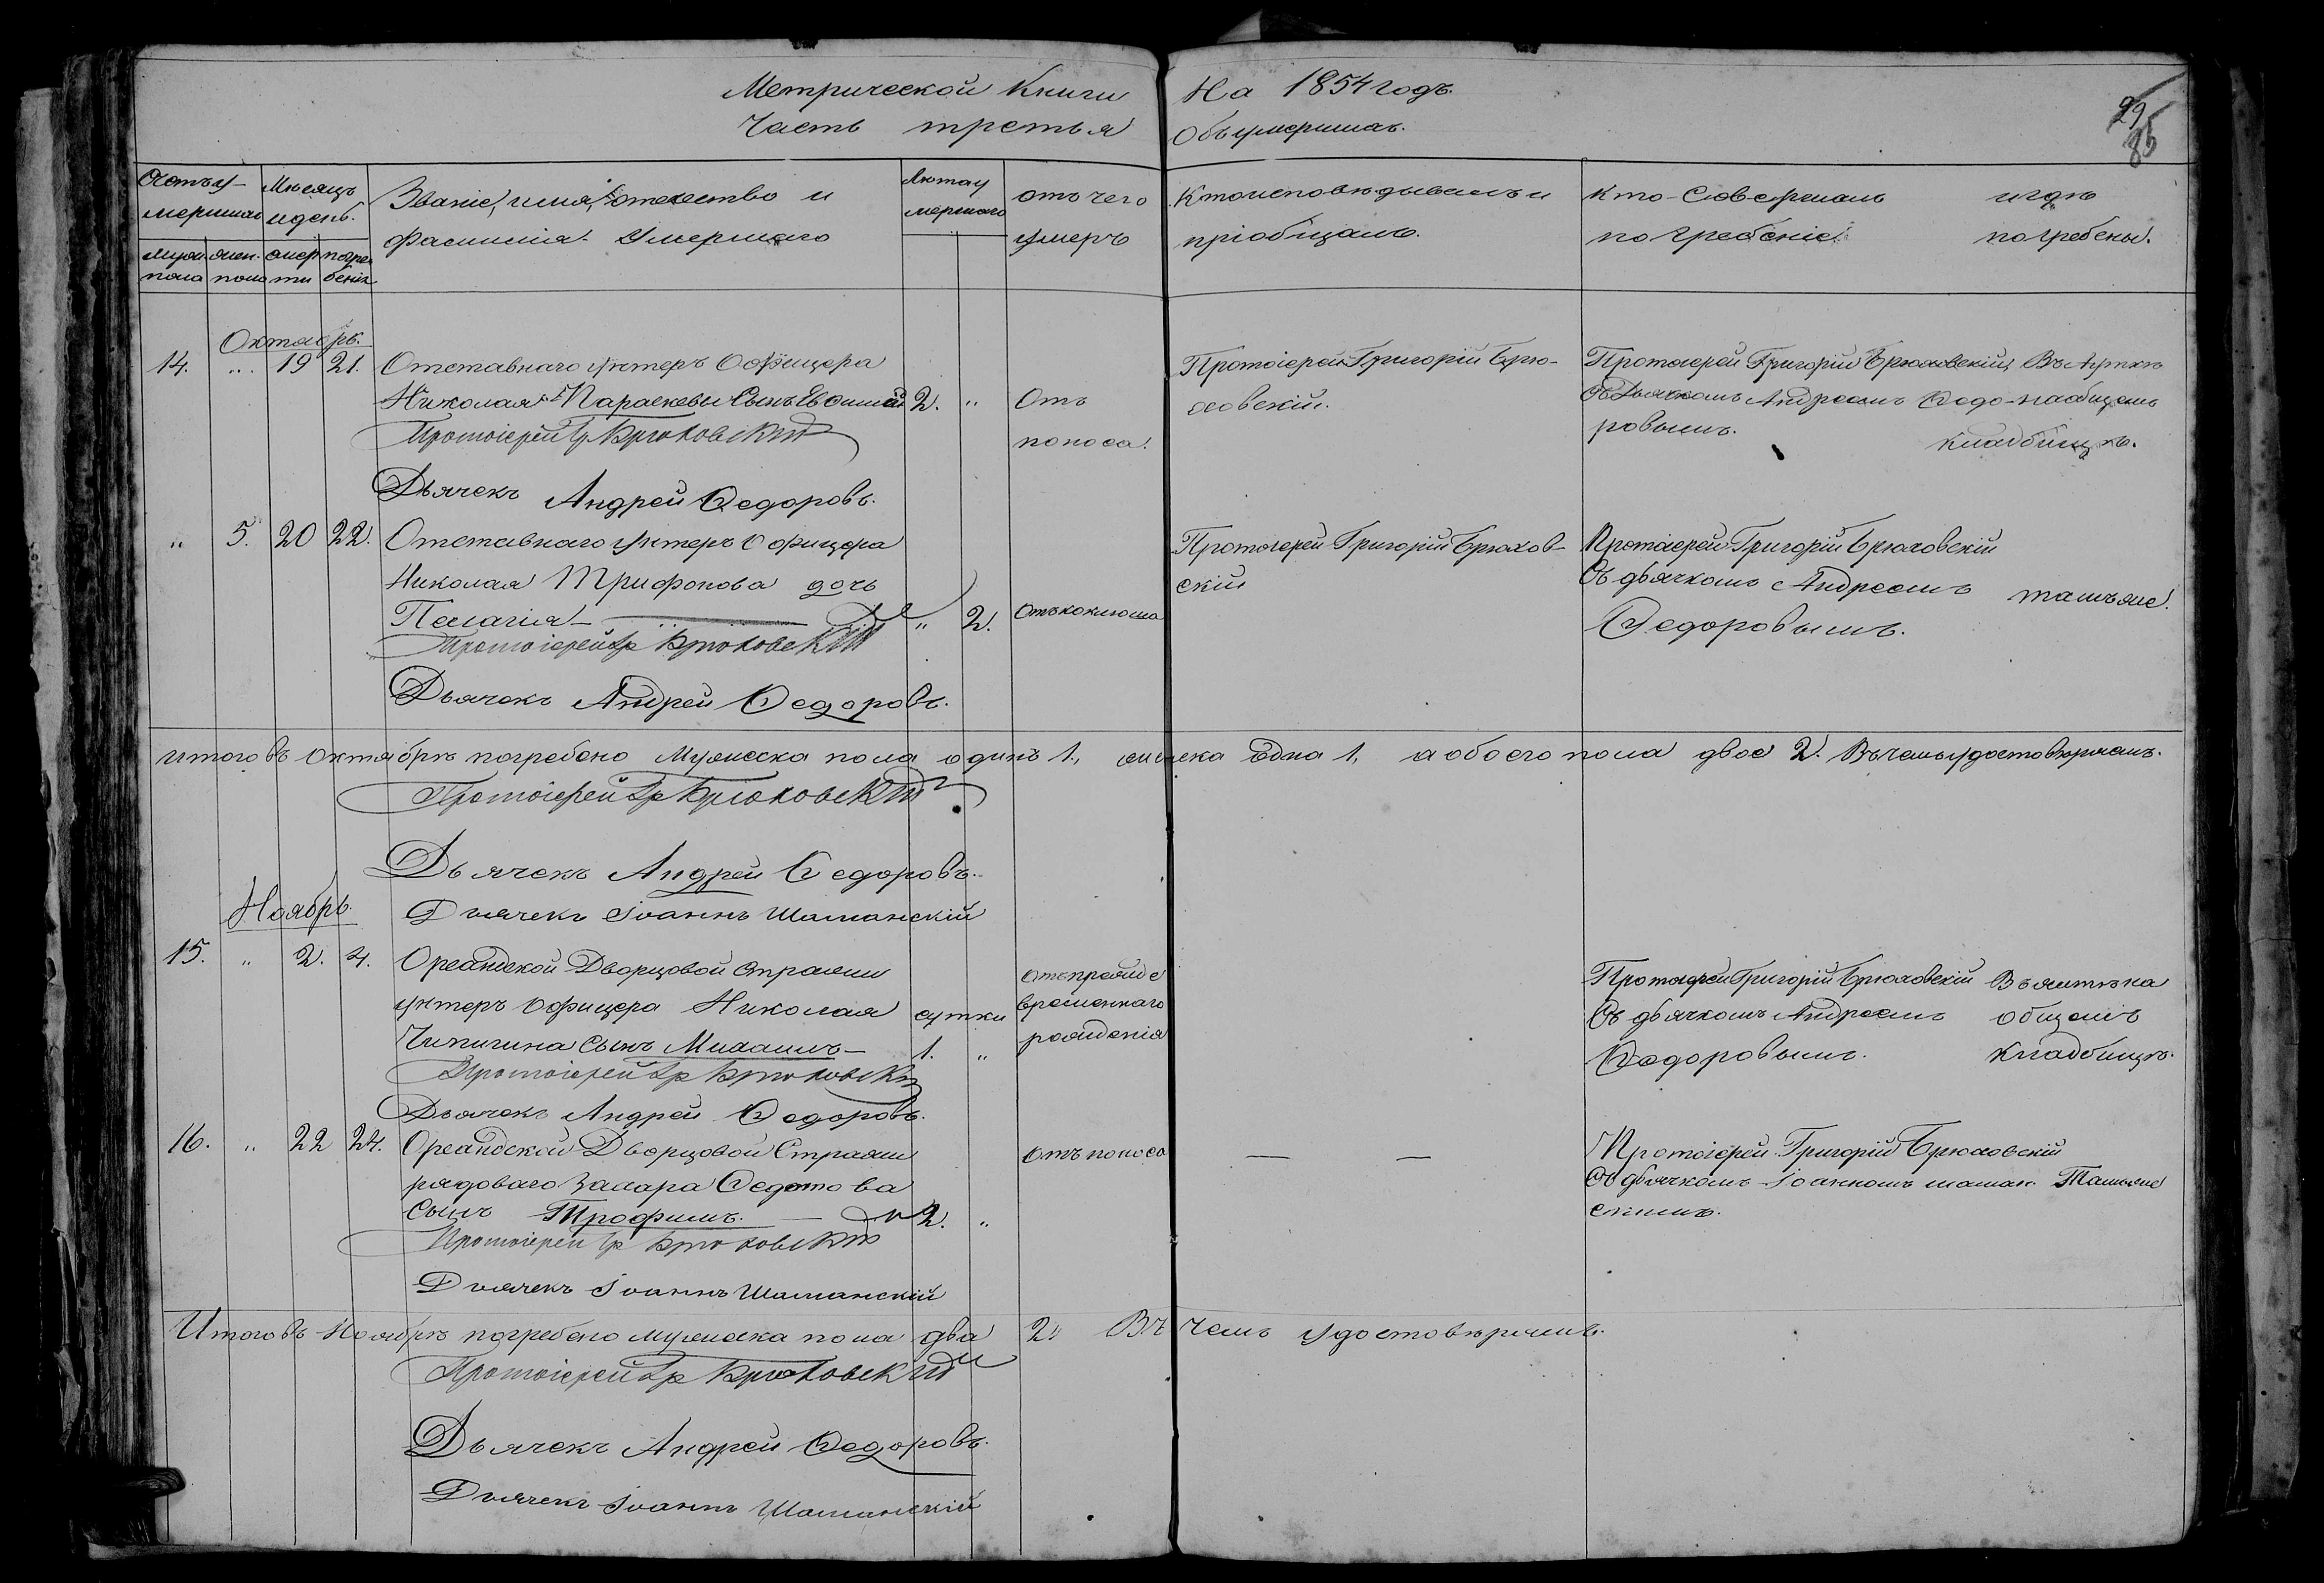 Метрической Книги На 1854 годъ.
Часть третья Объ умершихъ.
29
85
Счетъ у-
мершихъ
Муж. пола
жен. пола
Мѣсяцъ
и день.
смер ти
погре бенія
Званіе, имя, отчество и
фамилія умершаго
Лѣта у
мершаго
отъ чего
умеръ
Кто исповѣдывалъ и
пріобщалъ.
Кто совершалъ
погребеніе
и гдѣ
погребены.
Октябрь.
14. „ 19 21. Отставнаго унтеръ Офицера
Николая Параскевы Сынъ 2. „ Отъ
поноса.
Протоіерей Гр Брюховскій
Дьячекъ Андрей Ѳедоровъ.
Протоіерей Григорій Брю-
ховскій.
Протоіерей Григорій Брюховскій
съ Дьячкомъ Андреемъ Ѳедо-
ровымъ.
Въ Ауткѣ
на общемъ
кладбищѣ.
„ 5. 20 22. Отставнаго унтеръ Офицера
Николая Трифонова дочь
Пелагія „ 2. Отъ коклюша
Протоіерей Гр Брюховскій
Дьячекъ Андрей Ѳедоровъ.
Протоіерей Григорій Брюхов-
скій
Протоіерей Григорій Брюховскій
Съ дьячкомъ Андреемъ
Ѳедоровымъ.
тамъ же.
итого въ октябрѣ погребено Мужеска пола одинъ 1., женска одна 1, а обоего пола двое 2. Въ чемъ удостовѣряемъ.
Протоіерей Гр Брюховскій
Дьячекъ Андрей Ѳедоровъ.
Дьячекъ Іоаннъ Шаманскій
Ноябрь.
15. „ 2. 4. Ореандской Дворцовой стражи
унтеръ Офицера Николая сутки
Чипигина Сынъ Михаилъ 1. „
отъ прежде
временнаго
рожденія
Протоіерей Гр Брюховскій
Дьячекъ Андрей Ѳедоровъ.
Протоіерей Григорій Брюховскій
Съ дьячкомъ Андреемъ
Ѳедоровымъ.
В на
общемъ
кладбищѣ.
16. „ 22 24. Ореандской Дворцовой Стражи Отъ поноса
рядоваго Захара Ѳедотова
Сынъ Трофимъ. 2. „
Протоіерей Гр Брюховскій
Дьячекъ Іоаннъ Шаманскій
— —
Протоіерей Григорій Брюховскій
Съ дьячкомъ Іоанномъ Шаман-
скимъ.
Тамъ же
Итого въ Ноябрѣ погребено мужеска пола два 2. Въ чемъ удостовѣряемъ.
Протоіерей Гр Брюховскій
Дьячекъ Андрей Ѳедоровъ.
Дьячекъ Іоаннъ Шаманскій